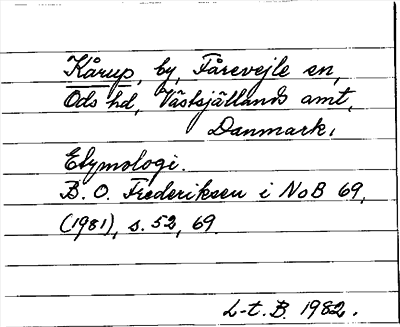 Kårup, by, Fårevejle sn,
Ods hd, Västsjällands amt,
Danmark.
Etymologi.
B. O. Frederiksen i NoB 69,
(1981), s. 52, 69.
L-t. B. 1982.